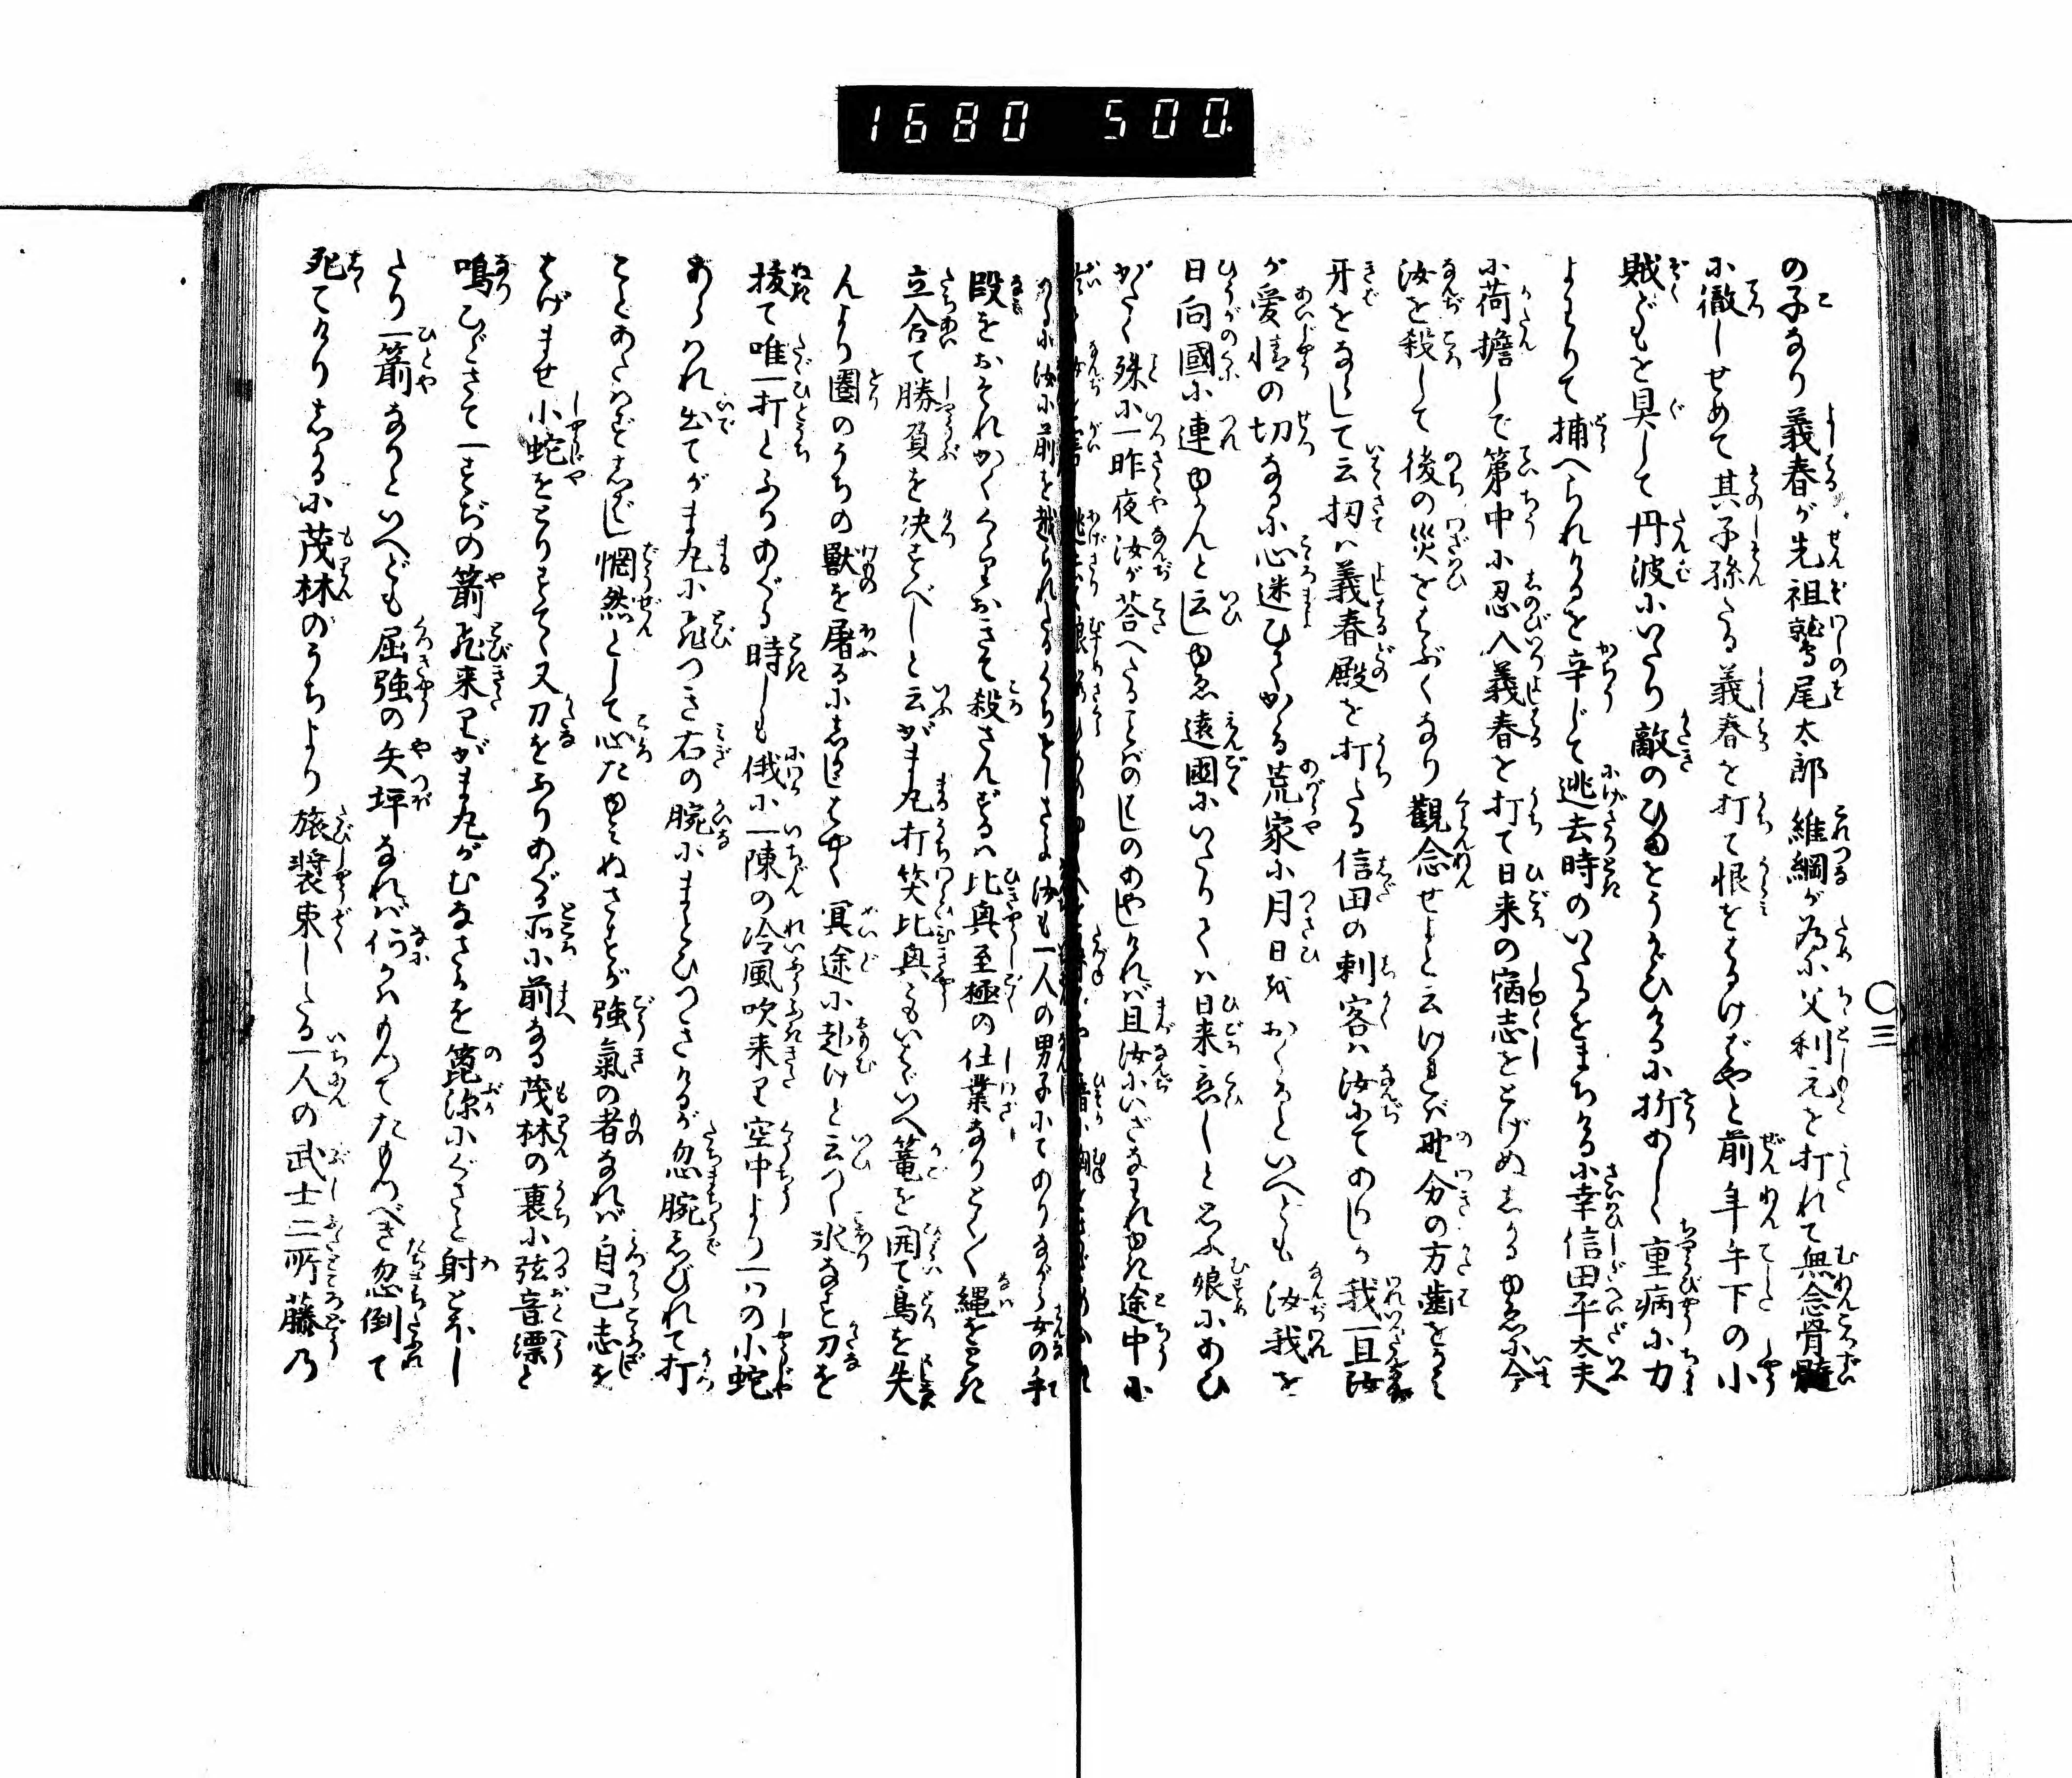 1680 500.
の子なり義春が先祖鷲尾太郎維綱が為に父利元を打れて無念骨髄
に徹しせめて其子孫たる義春を打て恨をはるけばやと前年手下の小
賊どもを具して丹波にいたり敵のひまをうかゞひけるに折あしく重病に力
よわりて捕へられけるを辛じて逃去時のいたるをまちけるに幸信田平太夫
に荷擔して第中に忍入義春を打て日来の宿志をとげぬしかるゆゑに今
汝を殺して後の災をはぶくなり観念せよと云ければ野分の方歯をくひ
牙をならして云扨は義春殿を打たる信田の刺客は汝にてありしか我一旦汝
が愛情の切なるに心迷ひてかゝる荒家に月日をおくるといへども汝我を
日向國に連ゆかんと云しゆゑ遠國にいたりては日来恋しと思ふ娘にあひ
がたく殊に一昨夜汝が荅へたることばのはしのあやしければ且汝にいざなはれゆき途中に
ける小汝に前を越られたるくちをしさよ汝も一人の男子にてありながら女の手
段をおそれかくくゝりおきて殺さんずるは比興至極の仕業なりとく〳〵縄をとき
立合て勝負を决すべしと云がま丸打笑比興にもいはゞいへ篭を開て鳥を失
んより圏のうちの獣を屠るにしかじはやく冥途に赴けと云つゝ氷なす刀を
抜て唯一打とふりあぐる時しも俄に一陳の冷風吹来り空中より一つの小蛇
あらはれ出てがま丸に飛つき右の腕にまとひつきけるが忽腕しびれて打
ことあたはずしばし惘然として心たゆみぬさすが強氣の者なれば自己志を
はげませ小蛇をとりすてゝ又刀をふりあぐる所に前なる茂林の裏に弦音㵱と
鳴ひゞきて一すぢの箭飛来りがま丸がむなさかを箆深にぐさと射とほし
たり一箭なりといへども屈強の矢坪なれば何かはもつてたもつべき忽倒て
死てけりしかるに茂林のうちより旅装束したる一人の武士二所藤乃